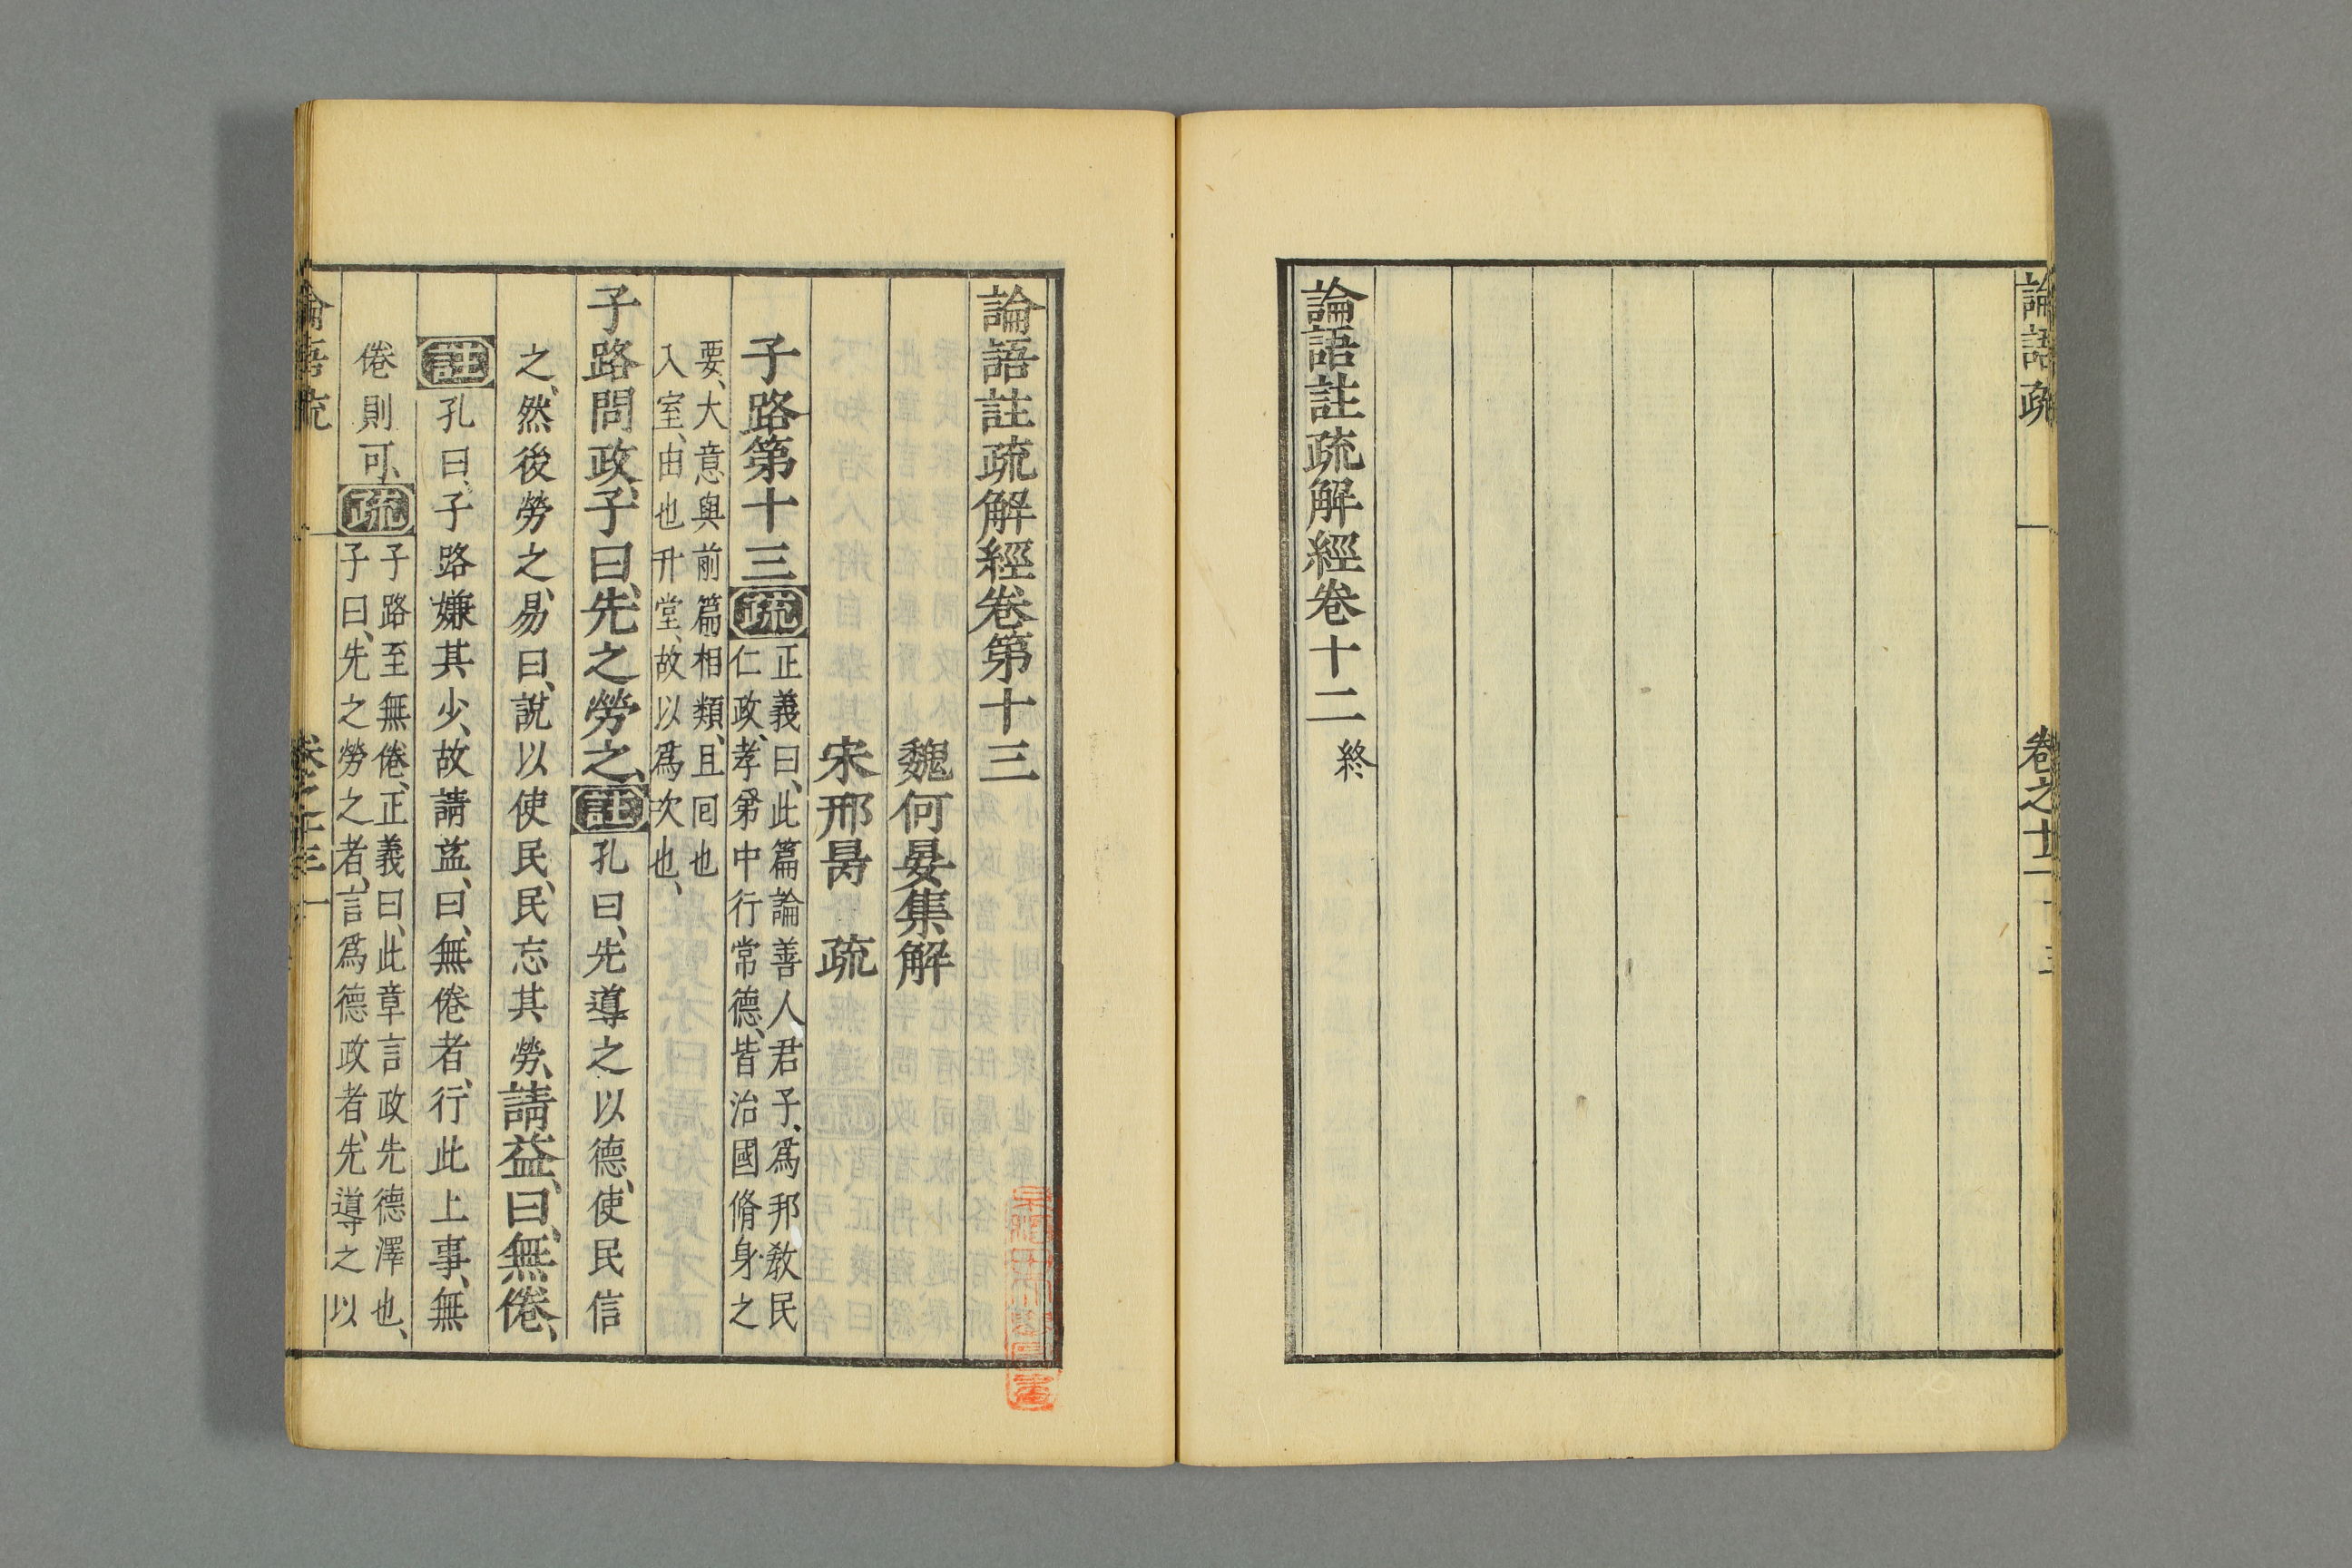 論語疏
卷之十二
論語註疏解經卷十二終
論語註疏解經卷第十三
魏何晏集解
宋邢昺 疏
子路第十三疏正義曰、此篇論善人、君子、爲邦教民
仁政、孝弟、中行常德、皆治國脩身之
要、大意與前篇相類、且回也
入室、由也升堂、故以爲次也、
子路問政、子曰、先之勞之、註孔曰、先導之以德、使民信
之、然後勞之、易曰、說以使民、民忘其勞、請益、曰、無倦、
註孔曰、子路嫌其少、故請益、曰、無倦者、行此上事、無
倦則可、疏子路至無倦、正義曰、此章言政先德澤也、
子曰、先之勞之者、言爲德政者、先導之以